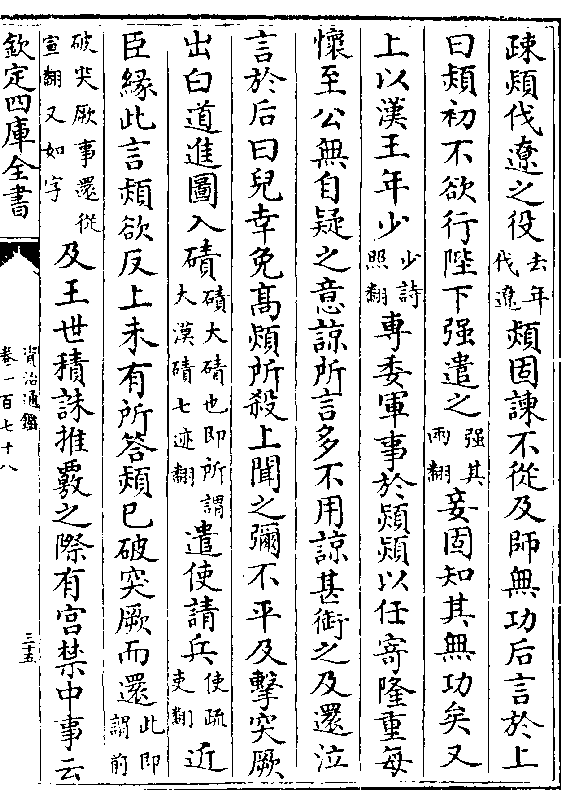 疎熲伐遼之役去年伐遼熲固諌不從及師無功后言於上
曰熲初不欲行陛下强遣之强其兩翻妾固知其無功矣又
上以漢王年少少詩照翻専委軍事於熲熲以任寄隆重每
懷至公無自疑之意諒所言多不用諒甚銜之及還泣
言於后曰兒幸免髙熲所殺上聞之彌不平及擊突厥
出白道進圖入磧磧大磧也即所謂大漠磧七迹翻遣使請兵使疏吏翻近
臣縁此言熲欲反上未有所答熲已破突厥而還此即謂前
破突厥事還從宣翻又如字及王世積誅推覈之際有宫禁中事云
欽定四庫全書
資治通鑑
卷一百七十八
三十五